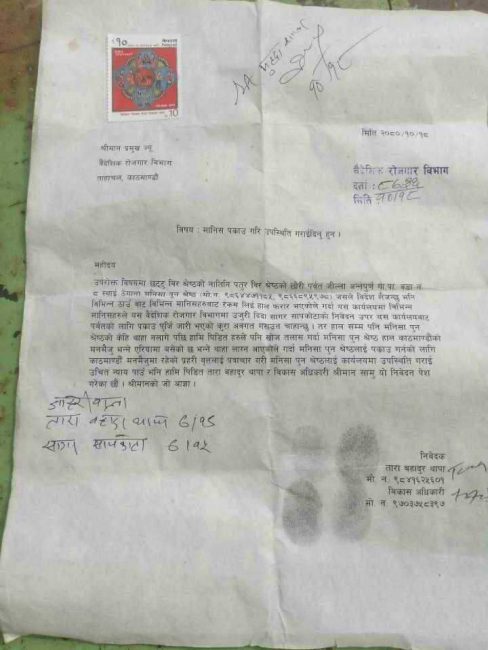 रु १०
नेपाल
NEPAL
रु 10
मिति २०८०/१०/१८
श्रीमान प्रमुख ज्यू
वैदेशिक रोजगार विभाग
ताहाचल, काठमाण्डौ
वैदेशिक रोजगार विभाग
दर्ता :
मिति
१०/१८
विषय : मानिस पक्राउ गरि उपस्थिति गराईदिनु हुन ।
महोदय
उपरोक्त विषयमा छट्टु बिर श्रेष्ठको नातिनि पतुर बिर श्रेष्ठको छोरी पर्वत जील्ला अन्नपुर्ण गा.पा. वडा नं
८ स्थाई ठेगाना मनिसा पुन श्रेष्ठ (मो.न. जसले विदेश लैजान्छु भनि
विभिन्न ठाउँ बाट विभिन्न मानिसहरुबाट रकम लिई हाल फरार भएकोले गर्दा यस कार्यलयमा विभिन्न
मानिसहरुले यस वैदेशिक रोजगार विभागमा उजुरी दिदा सागर सापकोटाको निवेदन उपर यस कार्यलयबाट
पर्वतको लागि पक्राउ पुर्जि जारी भएको कुरा अवगत गराउन चाहान्छु । तर हाल सम्म पनि मनिसा पुन
श्रेष्ठको केहि थाहा नलागे पछि हामि पिडित हरुले पनि खोज तलास गर्दा मनिसा पुन श्रेष्ठ हाल काठमाण्डौको
मनमैजु भन्ने एरियामा बसेको छ भन्ने थाहा लाग्न आएकोले गर्दा मनिसा पुन श्रेष्ठलाई पक्राउ गर्नको लागि
काठमाण्डौ मनमैजुमा रहेको प्रहरी वृत्तलाई पत्राचार गरी मनिसा पुन श्रेष्ठलाई कार्यलयमा उपस्थिति गराई
उचित न्याय पाउँ भनि हामि पिडित तारा बहादुर थापा र बिकास अधिकारी श्रीमान सामु यो निवेदन पेश
गरेका छौं । श्रीमानको जो आज्ञा ।
तारा बहादुर थापा
निवेदक
तारा बहादुर थापा
मो. न. ९८४९६२५६०१
बिकास अधिकारी
मो. न. ९७०३७५८३९७